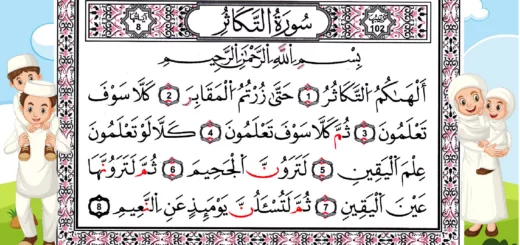 سُورَةُ التَّكَاثُرِ
102
8
بِسْمِ اللَّهِ الرَّحْمَٰنِ الرَّحِيمِ
أَلْهَاكُمُ التَّكَاثُرُ 1 حَتَّىٰ زُرْتُمُ الْمَقَابِرَ 2 كَلَّا سَوْفَ
تَعْلَمُونَ 3 ثُمَّ كَلَّا سَوْفَ تَعْلَمُونَ 4 كَلَّا لَوْ تَعْلَمُونَ
عِلْمَ الْيَقِينِ 5 لَتَرَوُنَّ الْجَحِيمَ 6 ثُمَّ لَتَرَوُنَّهَا
عَيْنَ الْيَقِينِ 7 ثُمَّ لَتُسْأَلُنَّ يَوْمَئِذٍ عَنِ النَّعِيمِ 8